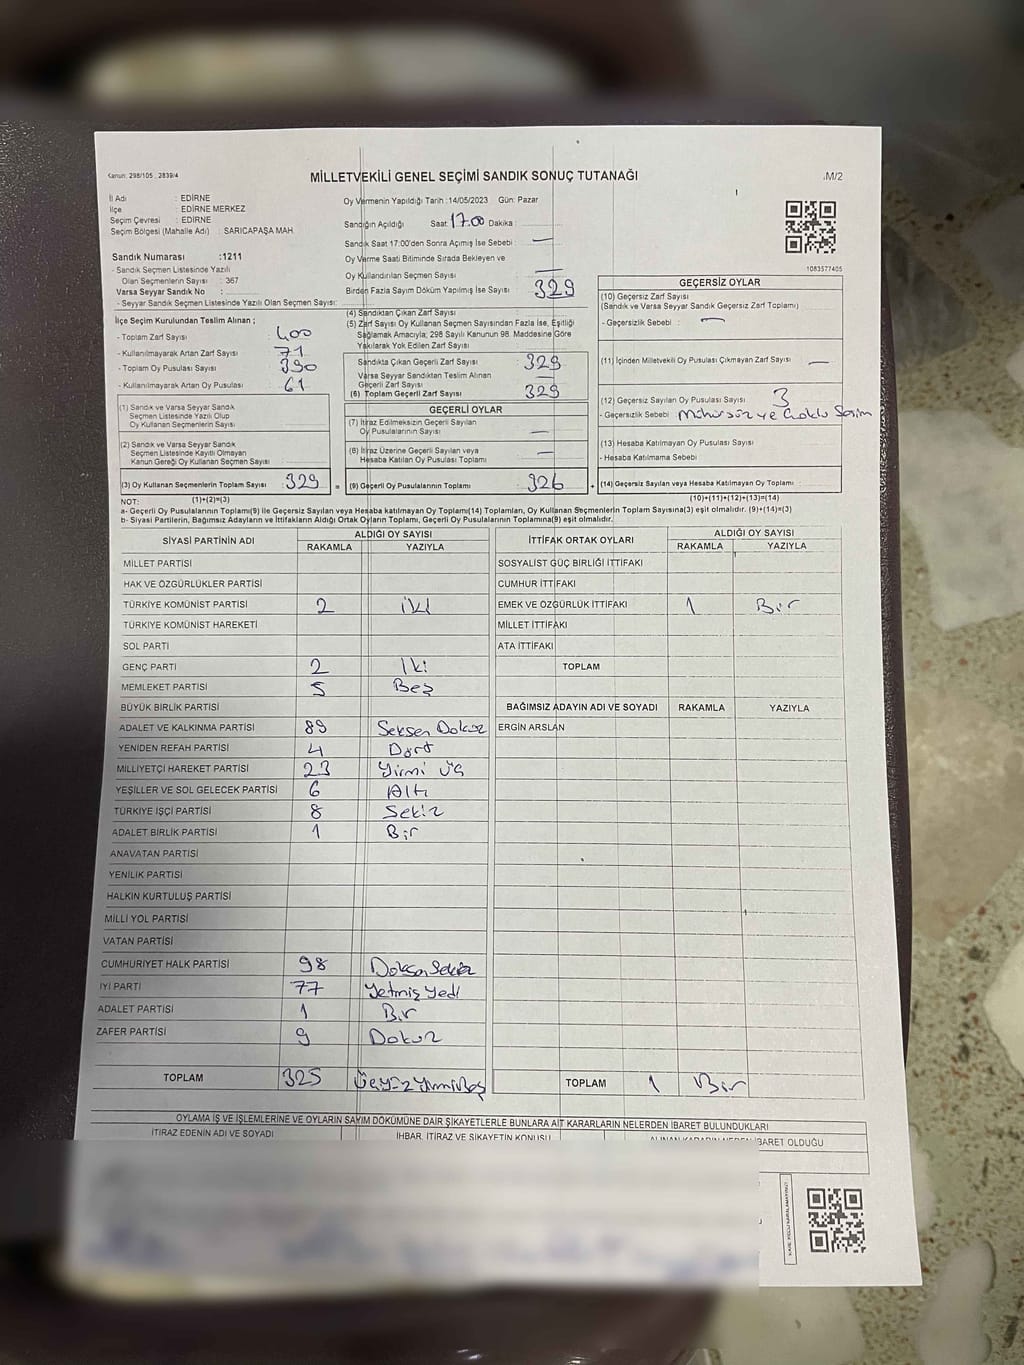 Kanun: 298/105, 2839/4
MİLLETVEKİLİ GENEL SEÇİMİ SANDIK SONUÇ TUTANAĞI
.M/2
İl Adı : EDİRNE
İlçe : EDİRNE MERKEZ
Seçim Çevresi : EDİRNE
Seçim Bölgesi (Mahalle Adı) : SARICAPAŞA MAH.
Sandık Numarası :1211
- Sandık Seçmen Listesinde Yazılı
Olan Seçmenlerin Sayısı : 367
Varsa Seyyar Sandık No :
- Seyyar Sandık Seçmen Listesinde Yazılı Olan Seçmen Sayısı:
Oy Vermenin Yapıldığı Tarih : 14/05/2023 Gün: Pazar
Sandığın Açıldığı Saat: 17.00 Dakika :
Sandık Saat 17:00'den Sonra Açımış İse Sebebi : —
Oy Verme Saati Bitiminde Sırada Bekleyen ve
Oy Kullandırılan Seçmen Sayısı —
Birden Fazla Sayım Döküm Yapılmış İse Sayısı : 329
1083577405
İlçe Seçim Kurulundan Teslim Alınan ;
- Toplam Zarf Sayısı : 400
- Kullanılmayarak Artan Zarf Sayısı : 71
- Toplam Oy Pusulası Sayısı : 390
- Kullanılmayarak Artan Oy Pusulası : 61
(1) Sandık ve Varsa Seyyar Sandık
Seçmen Listesinde Yazılı Olup
Oy Kullanan Seçmenlerin Sayısı
(2) Sandık ve Varsa Seyyar Sandık
Seçmen Listesinde Kayıtlı Olmayan
Kanun Gereği Oy Kullanan Seçmen Sayısı
(3) Oy Kullanan Seçmenlerin Toplam Sayısı : 329
(4) Sandıktan Çıkan Zarf Sayısı
(5) Zarf Sayısı Oy Kullanan Seçmen Sayısından Fazla İse, Eşitliği
Sağlamak Amacıyla; 298 Sayılı Kanunun 98. Maddesine Göre
Yakılarak Yok Edilen Zarf Sayısı
Sandıkta Çıkan Geçerli Zarf Sayısı : 329
Varsa Seyyar Sandıktan Teslim Alınan
Geçerli Zarf Sayısı —
(6) Toplam Geçerli Zarf Sayısı : 329
GEÇERLİ OYLAR
(7) İtiraz Edilmeksizin Geçerli Sayılan
Oy Pusulalarının Sayısı —
(8) İtiraz Üzerine Geçerli Sayılan veya
Hesaba Katılan Oy Pusulası Toplamı —
= (9) Geçerli Oy Pusulalarının Toplamı : 326 +
GEÇERSİZ OYLAR
(10) Geçersiz Zarf Sayısı
(Sandık ve Varsa Seyyar Sandık Geçersiz Zarf Toplamı)
- Geçersizlik Sebebi : —
(11) İçinden Milletvekili Oy Pusulası Çıkmayan Zarf Sayısı —
(12) Geçersiz Sayılan Oy Pusulası Sayısı 3
- Geçersizlik Sebebi Mühürsüz ve Çoklu Seçim
(13) Hesaba Katılmayan Oy Pusulası Sayısı
- Hesaba Katılmama Sebebi
(14) Geçersiz Sayılan veya Hesaba Katılmayan Oy Toplamı :
NOT: (1)+(2)=(3)
(10)+(11)+(12)+(13)=(14)
a- Geçerli Oy Pusulalarının Toplamı(9) ile Geçersiz Sayılan veya Hesaba katılmayan Oy Toplamı(14) Toplamları, Oy Kullanan Seçmenlerin Toplam Sayısına(3) eşit olmalıdır. (9)+(14)=(3)
b- Siyasi Partilerin, Bağımsız Adayların ve İttifakların Aldığı Ortak Oyların Toplamı, Geçerli Oy Pusulalarının Toplamına(9) eşit olmalıdır.
SİYASİ PARTİNİN ADI ALDIĞI OY SAYISI
RAKAMLA YAZIYLA
MİLLET PARTİSİ
HAK VE ÖZGÜRLÜKLER PARTİSİ
TÜRKİYE KOMÜNİST PARTİSİ 2 iki
TÜRKİYE KOMÜNİST HAREKETİ
SOL PARTİ
GENÇ PARTİ 2 İki
MEMLEKET PARTİSİ 5 Beş
BÜYÜK BİRLİK PARTİSİ
ADALET VE KALKINMA PARTİSİ 89 Seksen Dokuz
YENİDEN REFAH PARTİSİ 4 Dört
MİLLİYETÇİ HAREKET PARTİSİ 23 Yirmi Üç
YEŞİLLER VE SOL GELECEK PARTİSİ 6 Altı
TÜRKİYE İŞÇİ PARTİSİ 8 Sekiz
ADALET BİRLİK PARTİSİ 1 Bir
ANAVATAN PARTİSİ
YENİLİK PARTİSİ
HALKIN KURTULUŞ PARTİSİ
MİLLİ YOL PARTİSİ
VATAN PARTİSİ
CUMHURİYET HALK PARTİSİ 98 Doksan Sekiz
İYİ PARTİ 77 Yetmiş Yedi
ADALET PARTİSİ 1 Bir
ZAFER PARTİSİ 9 Dokuz
TOPLAM 325 Üçyüz Yirmi Beş
İTTİFAK ORTAK OYLARI ALDIĞI OY SAYISI
RAKAMLA YAZIYLA
SOSYALİST GÜÇ BİRLİĞİ İTTİFAKI
CUMHUR İTTİFAKI
EMEK VE ÖZGÜRLÜK İTTİFAKI 1 Bir
MİLLET İTTİFAKI
ATA İTTİFAKI
TOPLAM
BAĞIMSIZ ADAYIN ADI VE SOYADI RAKAMLA YAZIYLA
ERGİN ARSLAN
TOPLAM 1 Bir
OYLAMA İŞ VE İŞLEMLERİNE VE OYLARIN SAYIM DÖKÜMÜNE DAİR ŞİKAYETLERLE BUNLARA AİT KARARLARIN NELERDEN İBARET BULUNDUKLARI
İTİRAZ EDENİN ADI VE SOYADI İHBAR, İTİRAZ VE ŞİKAYETİN KONUSU ALINAN KARARIN NEDEN İBARET OLDUĞU